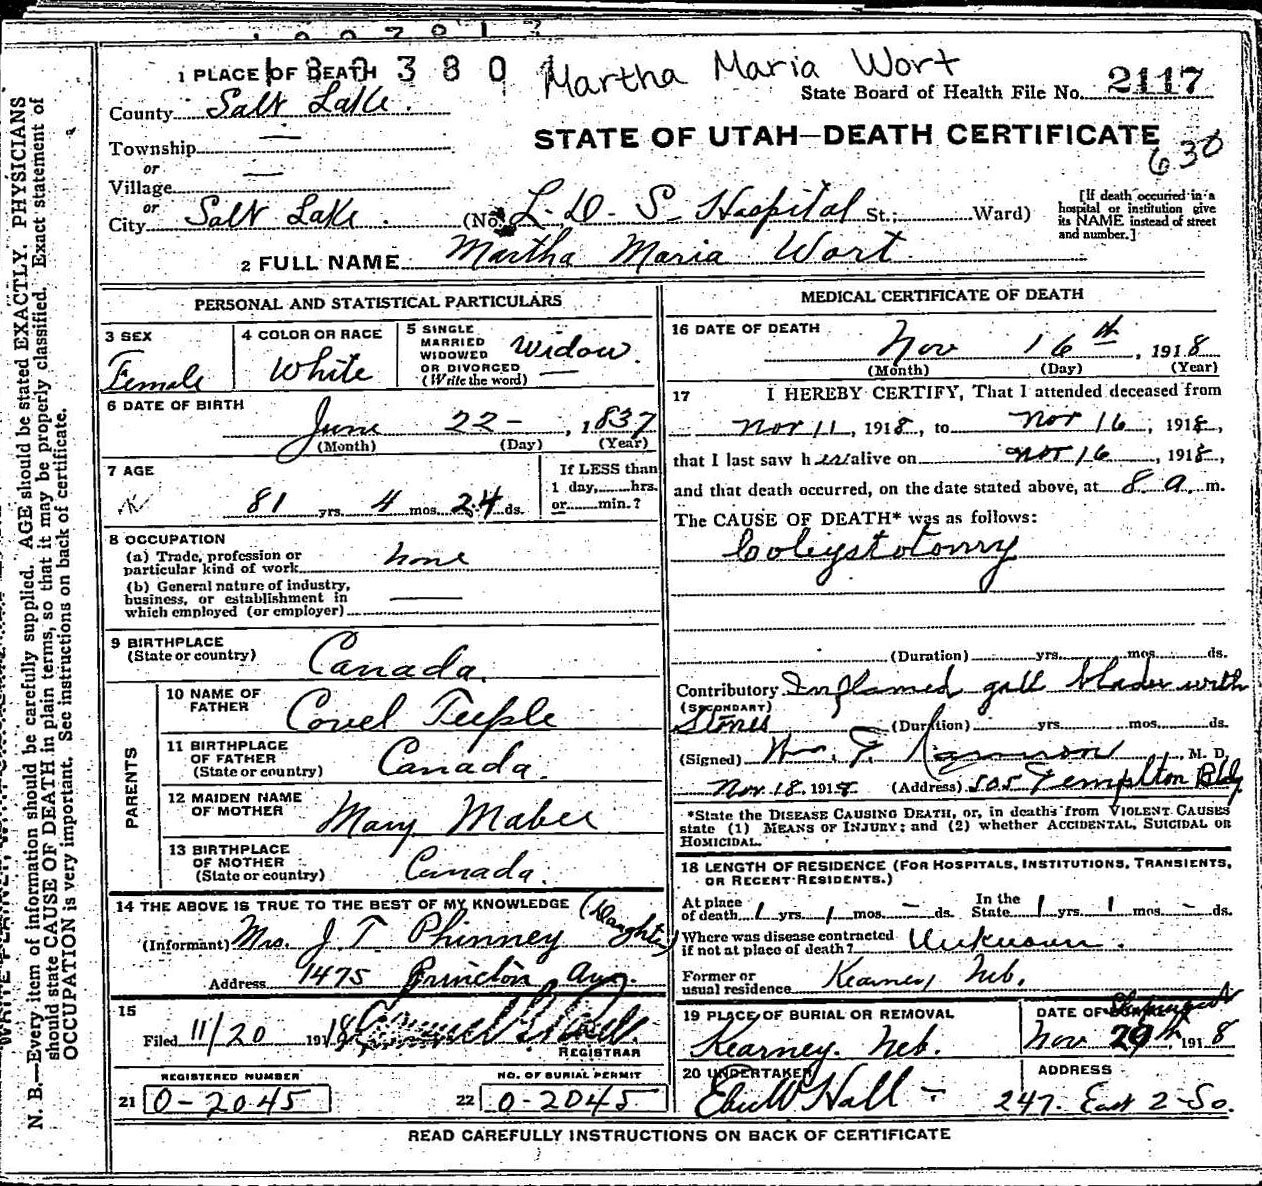 1 PLACE OF DEATH 380 Martha Maria Wort
State Board of Health File No. 2117
County Salt Lake.
STATE OF UTAH—DEATH CERTIFICATE
630
Township
or
Village
or
City Salt Lake. (No. L. D. S. Hospital St.; Ward)
[If death occurred in a hospital or institution give its NAME instead of street and number.]
2 FULL NAME Martha Maria Wort
PERSONAL AND STATISTICAL PARTICULARS
3 SEX Female
4 COLOR OR RACE White
5 SINGLE MARRIED WIDOWED OR DIVORCED (Write the word) Widow.
6 DATE OF BIRTH
June 22 – , 1837
(Month) (Day) (Year)
7 AGE
81 yrs. 4 mos. 24 ds.
If LESS than 1 day, hrs. or min.?
8 OCCUPATION
(a) Trade, profession or particular kind of work none
(b) General nature of industry, business, or establishment in which employed (or employer)
9 BIRTHPLACE (State or country) Canada.
PARENTS
10 NAME OF FATHER Covel Teeple
11 BIRTHPLACE OF FATHER (State or country) Canada.
12 MAIDEN NAME OF MOTHER Mary Mabee
13 BIRTHPLACE OF MOTHER (State or country) Canada.
14 THE ABOVE IS TRUE TO THE BEST OF MY KNOWLEDGE (Daughter)
(Informant) Mrs. J. T. Phinney
Address 1475 Princton Ave.
15
Filed 11/20 1918
REGISTRAR
REGISTERED NUMBER
21 0-2045
NO. OF BURIAL PERMIT
22 0-2045
MEDICAL CERTIFICATE OF DEATH
16 DATE OF DEATH
Nov 16th, 1918
(Month) (Day) (Year)
17 I HEREBY CERTIFY, That I attended deceased from
Nov 11, 1918, to Nov 16, 1918,
that I last saw her alive on Nov 16, 1918,
and that death occurred, on the date stated above, at 8 a. m.
The CAUSE OF DEATH* was as follows:
Coleystotomy
(Duration) yrs. mos. ds.
Contributory Inflamed gall blader with
(SECONDARY)
Stones (Duration) yrs. mos. ds.
(Signed) M. D.
Nov. 18, 1918 (Address) 505 Templton Bldg.
*State the DISEASE CAUSING DEATH, or, in deaths from VIOLENT CAUSES
state (1) MEANS OF INJURY; and (2) whether ACCIDENTAL, SUICIDAL OR
HOMICIDAL.
18 LENGTH OF RESIDENCE (FOR HOSPITALS, INSTITUTIONS, TRANSIENTS,
OR RECENT RESIDENTS.)
At place of death 1 yrs. 1 mos. – ds. In the State 1 yrs. 1 mos. – ds.
Where was disease contracted if not at place of death? Unknown.
Former or usual residence Kearney, Neb.
19 PLACE OF BURIAL OR REMOVAL
Kearney. Neb.
DATE OF Shipment
Nov 20th, 1918
20 UNDERTAKER
Eber W Hall –
ADDRESS
247. East 2-So.
READ CAREFULLY INSTRUCTIONS ON BACK OF CERTIFICATE
N. B.—Every item of information should be carefully supplied. AGE should be stated EXACTLY. PHYSICIANS
should state CAUSE OF DEATH in plain terms, so that it may be properly classified. Exact statement of
OCCUPATION is very important. See instructions on back of certificate.